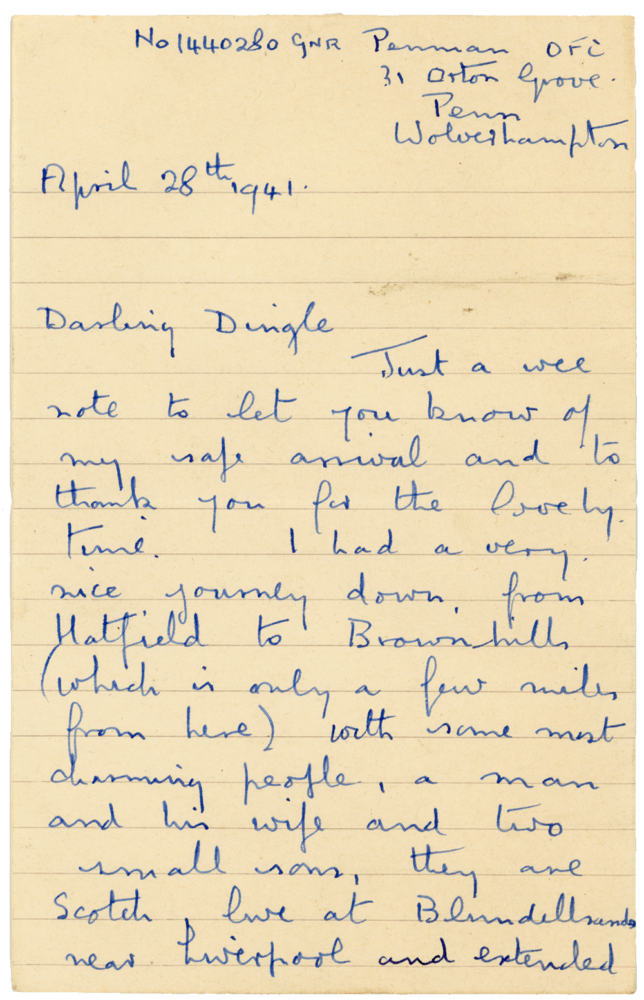 No 1440280 GNR Penman OFC
31 Orton Grove.
Penn
Wolverhampton
April 28th, 1941.
Darling Dingle
Just a wee
note to let you know of
my safe arrival and to
thank you for the lovely
time. I had a very
nice journey down, from
Hatfield to Brownhills
(which is only a few miles
from here) with some most
charming people, a man
and his wife and two
small sons, they are
Scotch, live at Blundellsands
near Liverpool and extended